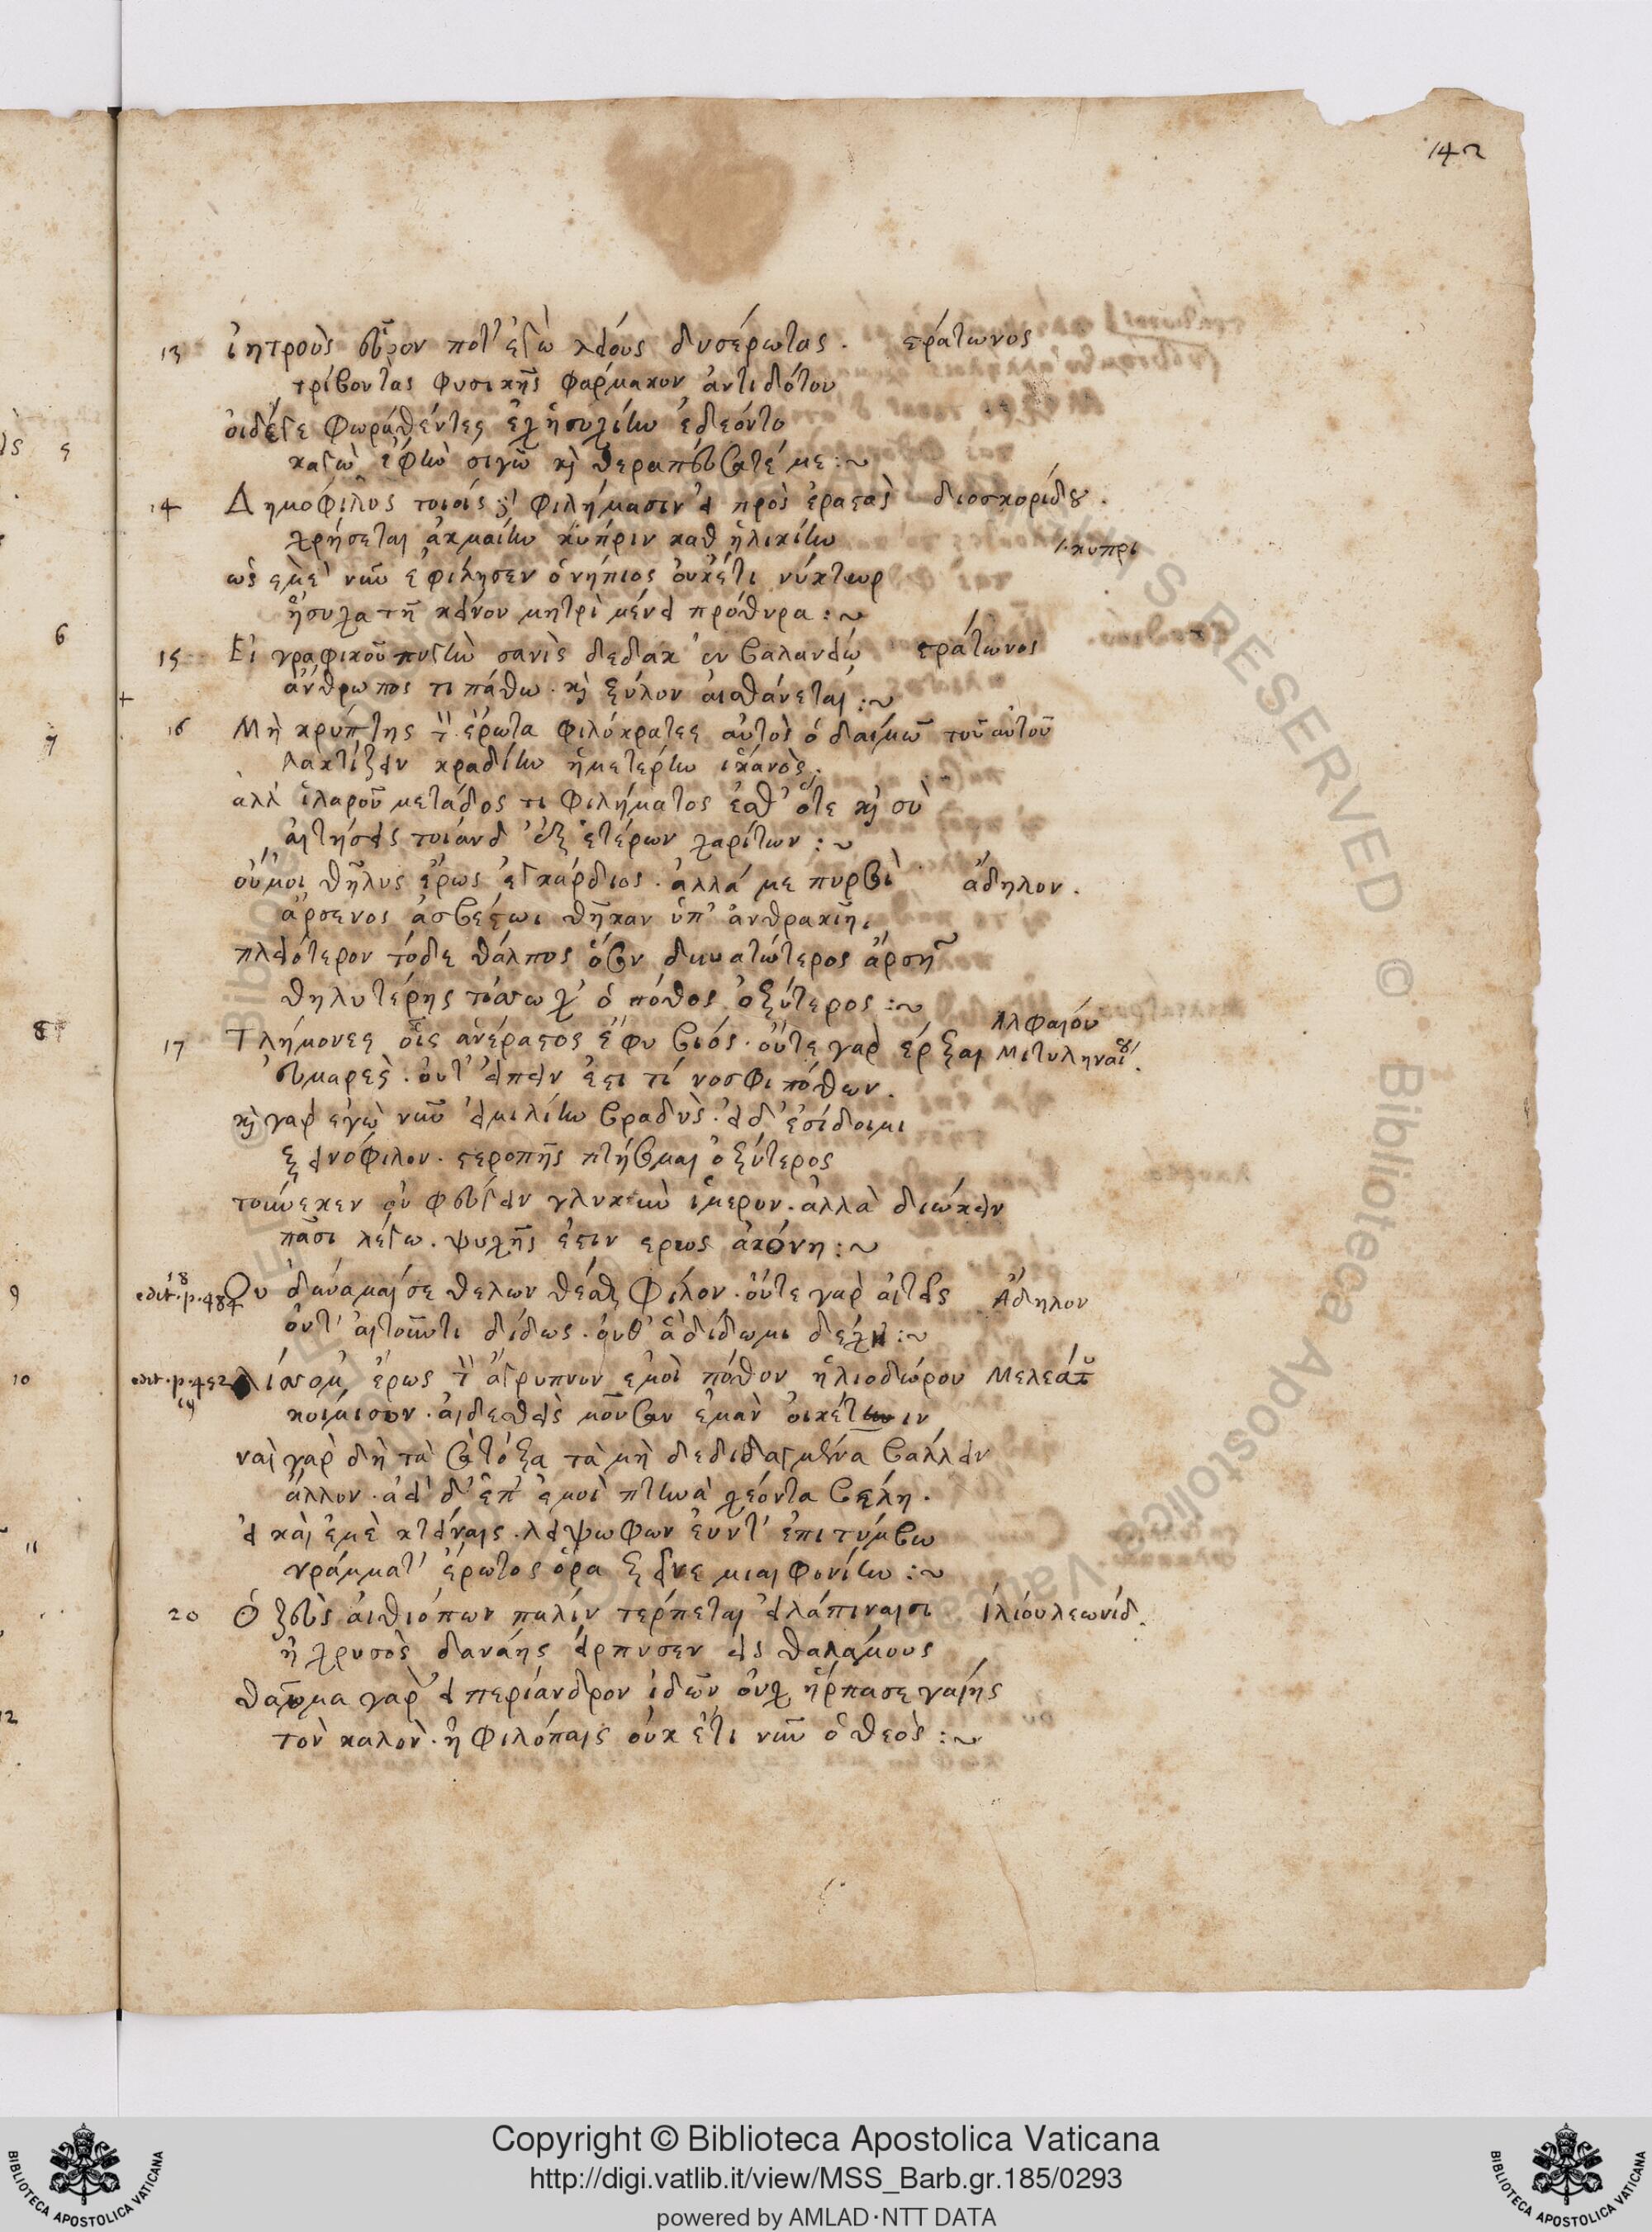 142
13 ἰητροὺς εὗρον ποτ' ἐγὼ λείους δυσέρωτας . εράτωνος
τρίβοντας φυσικῆς φάρμακον ἀντιδότου
οἱδέ γε φωραθέντες ἐχ ἡσυχίην ἐδέοντο
καγὼ ἔφην σιγῶ κὶ θεραπεύσατέ με :~
14 Δημόφιλος τοιοῖς φιλήμασιν εἰ πρὸς ἐραστὰς διοσκορίδου .
χρήσεται ἀκμαίην κύπριν καθ ἡλικίην
κυπρι
ὡς ἐμὲ νῦν ἐφίλησεν ὁ νήπιος οὐκέτι νύκτωρ
ἥσυχα τῇ κείνου μητρὶ μένει πρόθυρα :~
15 Εἰ γραφικοῦ πυγὴν σανὶς δέδακ' ἐν βαλανείω εράτωνος
ἄνθρωπος τι πάθω . κὶ ξύλον αἰσθάνεται :~
16 Μὴ κρύπτης τὸν ἔρωτα φιλόκρατες αὐτὸς ὁ δαίμων τοῦ αὐτοῦ
λακτίζειν κραδίην ἡμετέρην ἱκανὸς.
ἀλλ' ἱλαροῦ μετάδος τι φιλήματος ἔσθ' ὅτε κὶ σὺ
αἰτήσεις τοιάνδ' ἐξ ἑτέρων χαρίτων :~
οὔ μοι θῆλυς ἔρως ἐγκάρδιος . ἀλλά με πυρσοὶ ἄδηλον .
ἄρσενος ἀσβέστωι θῆκαν ὑπ' ἀνθρακιῇ.
πλειότερον τόδε θάλπος ὅσον δυνατώτερος ἄρσην
θηλυτέρης τόσσω χ' ὁ πόθος ὀξύτερος :~
17 Τλήμονες οἷς ἀνέραστος ἔφυ βιός . οὔτε γαρ ἔρξαι Αλφαιόυ Μιτυληναίου .
εὐμαρὲς . οὔτ' εἰπεῖν ἐστι τί νόσφι πόθων .
κὶ γαρ ἐγὼ νῦν εἰμι λίην βραδὺς . εἰ δ' ἐσίδοιμι
ξεινόφιλον . στεροπῆς πτήσομαι ὀξύτερος
τοὔνεκεν οὐ φεύγειν γλυκὺν ἵμερον . ἀλλὰ διώκειν
πᾶσι λέγω . ψυχῆς ἐστιν ερως ἀκόνη :~
18 edit.p.484 Ου δύναμαί σε θέλων θέσθαι φίλον . οὔτε γαρ αἰτεῖς Ἄδηλον
οὔτ' αἰτοῦντι δίδως . οὐθ' ἃ δίδωμι δέχη :~
19 edit.p.452 λίσσομ' ἔρως τὸν ἄγρυπνον ἐμοὶ πόθον ἡλιοδώρου Μελεάγρου
κοίμισον . αἰδεσθεὶς μοῦσαν ἐμὰν οἰκέτιν
ναὶ γαρ δὴ τὰ σὰ τόξα τὰ μὴ δεδιδαγμένα βάλλειν
ἄλλον . ἀεὶ δ' ἐπ' ἐμοὶ πτηνὰ χέοντα βέλη .
εἰ καὶ ἐμὲ κτείναις . λείψω φων εῦντ' ἐπι τύμβω
γράμματ' ἔρωτος ὅρα ξεῖνε μιαιφονίην :~
20 Ὁ ζεὺς αἰθιόπων παλίν τέρπεται εἰλαπίναισι Ἰλίου λεωνίδ .
ἢ χρυσὸς δανάης εἵρπυσεν εἰς θαλάμους
θαῦμα γαρ εἰ περίανδρον ἰδὼν οὐχ ἥρπασε γαίης
τὸν καλὸν . ἢ φιλόπαις οὐκ ἔτι νῦν ὁ θεὸς :~
6
7
8
9
10
11
12
Copyright © Biblioteca Apostolica Vaticana
http://digi.vatlib.it/view/MSS_Barb.gr.185/0293
powered by AMLAD·NTT DATA
BIBLIOTECA APOSTOLICA VATICANA
BIBLIOTECA APOSTOLICA VATICANA